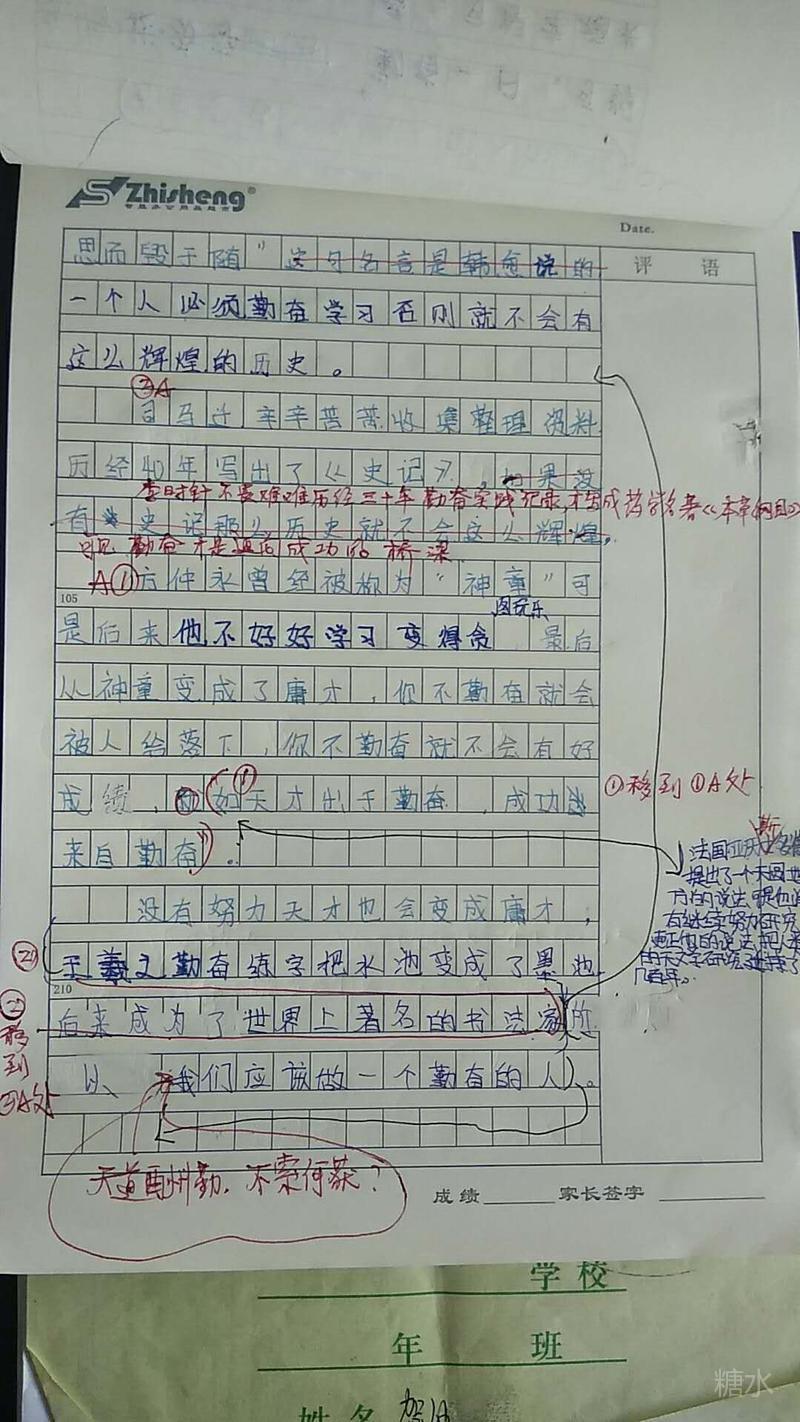 Zhisheng®
Date.
评 语
思而毁于随”这句名言是韩愈说的
一个人必须勤奋学习否则就不会有
这么辉煌的历史。
③A
司马迁辛辛苦苦收集整理资料
历经40年写出了《史记》,如果没
李时针不畏难难历经三十年勤奋实践记录,才写成药学名著《本草纲目》
有史记那么历史就不会这么辉煌。
可见勤奋才是通向成功的桥梁
A①方仲永曾经被称为“神童”可
105
图玩乐
是后来他不好好学习变得贪 最后
从神童变成了庸才,你不勤奋就会
被人给落下,你不勤奋就不会有好
①
成绩,(如天才出于勤奋,成功
①移到①A处
来自勤奋”)。
斯
法国亚历
提出了一个
没有努力天才也会变成庸才,
②
王羲之勤奋练字把水池变成了墨池
几百年。
210
后来成为了世界上著名的书法家所
②移到③A处
以 我们应该做一个勤奋的人)。
天道酬勤,不索何获?
成绩 家长签字
学校
年 班
姓名
糖水